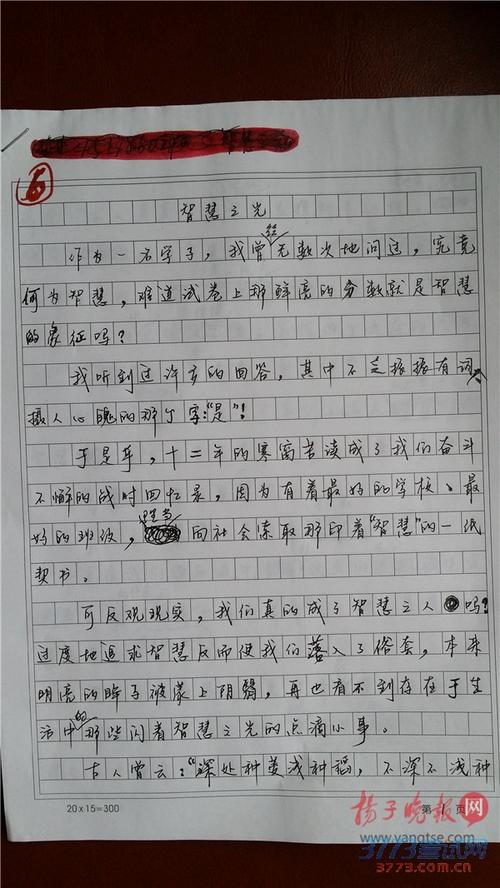 6
智慧之光
作为一名学子，我曾经无数次地问过，究竟
何为智慧，难道试卷上那鲜亮的分数就是智慧
的象征吗？
我听到过许多的回答，其中不乏振振有词、
摄人心魄的那个字："是"！
于是乎，十二年的寒窗苦读成了我们奋斗
不懈的战时回忆录，因为有着最好的学校、最
好的班级，向社会索取那印着"智慧"的一纸
契书。
可反观现实，我们真的成了智慧之人吗？
过度地追求智慧反而使我们落入了俗套，本来
明亮的眸子被蒙上阴翳，再也看不到存在于生
活中的那些闪着智慧之光的点滴小事。
古人曾云："深处种菱浅种稻，不深不浅种
20×15=300
第 1 页
扬子晚报网
www.yangtse.com
3773考试网
3773.com.cn